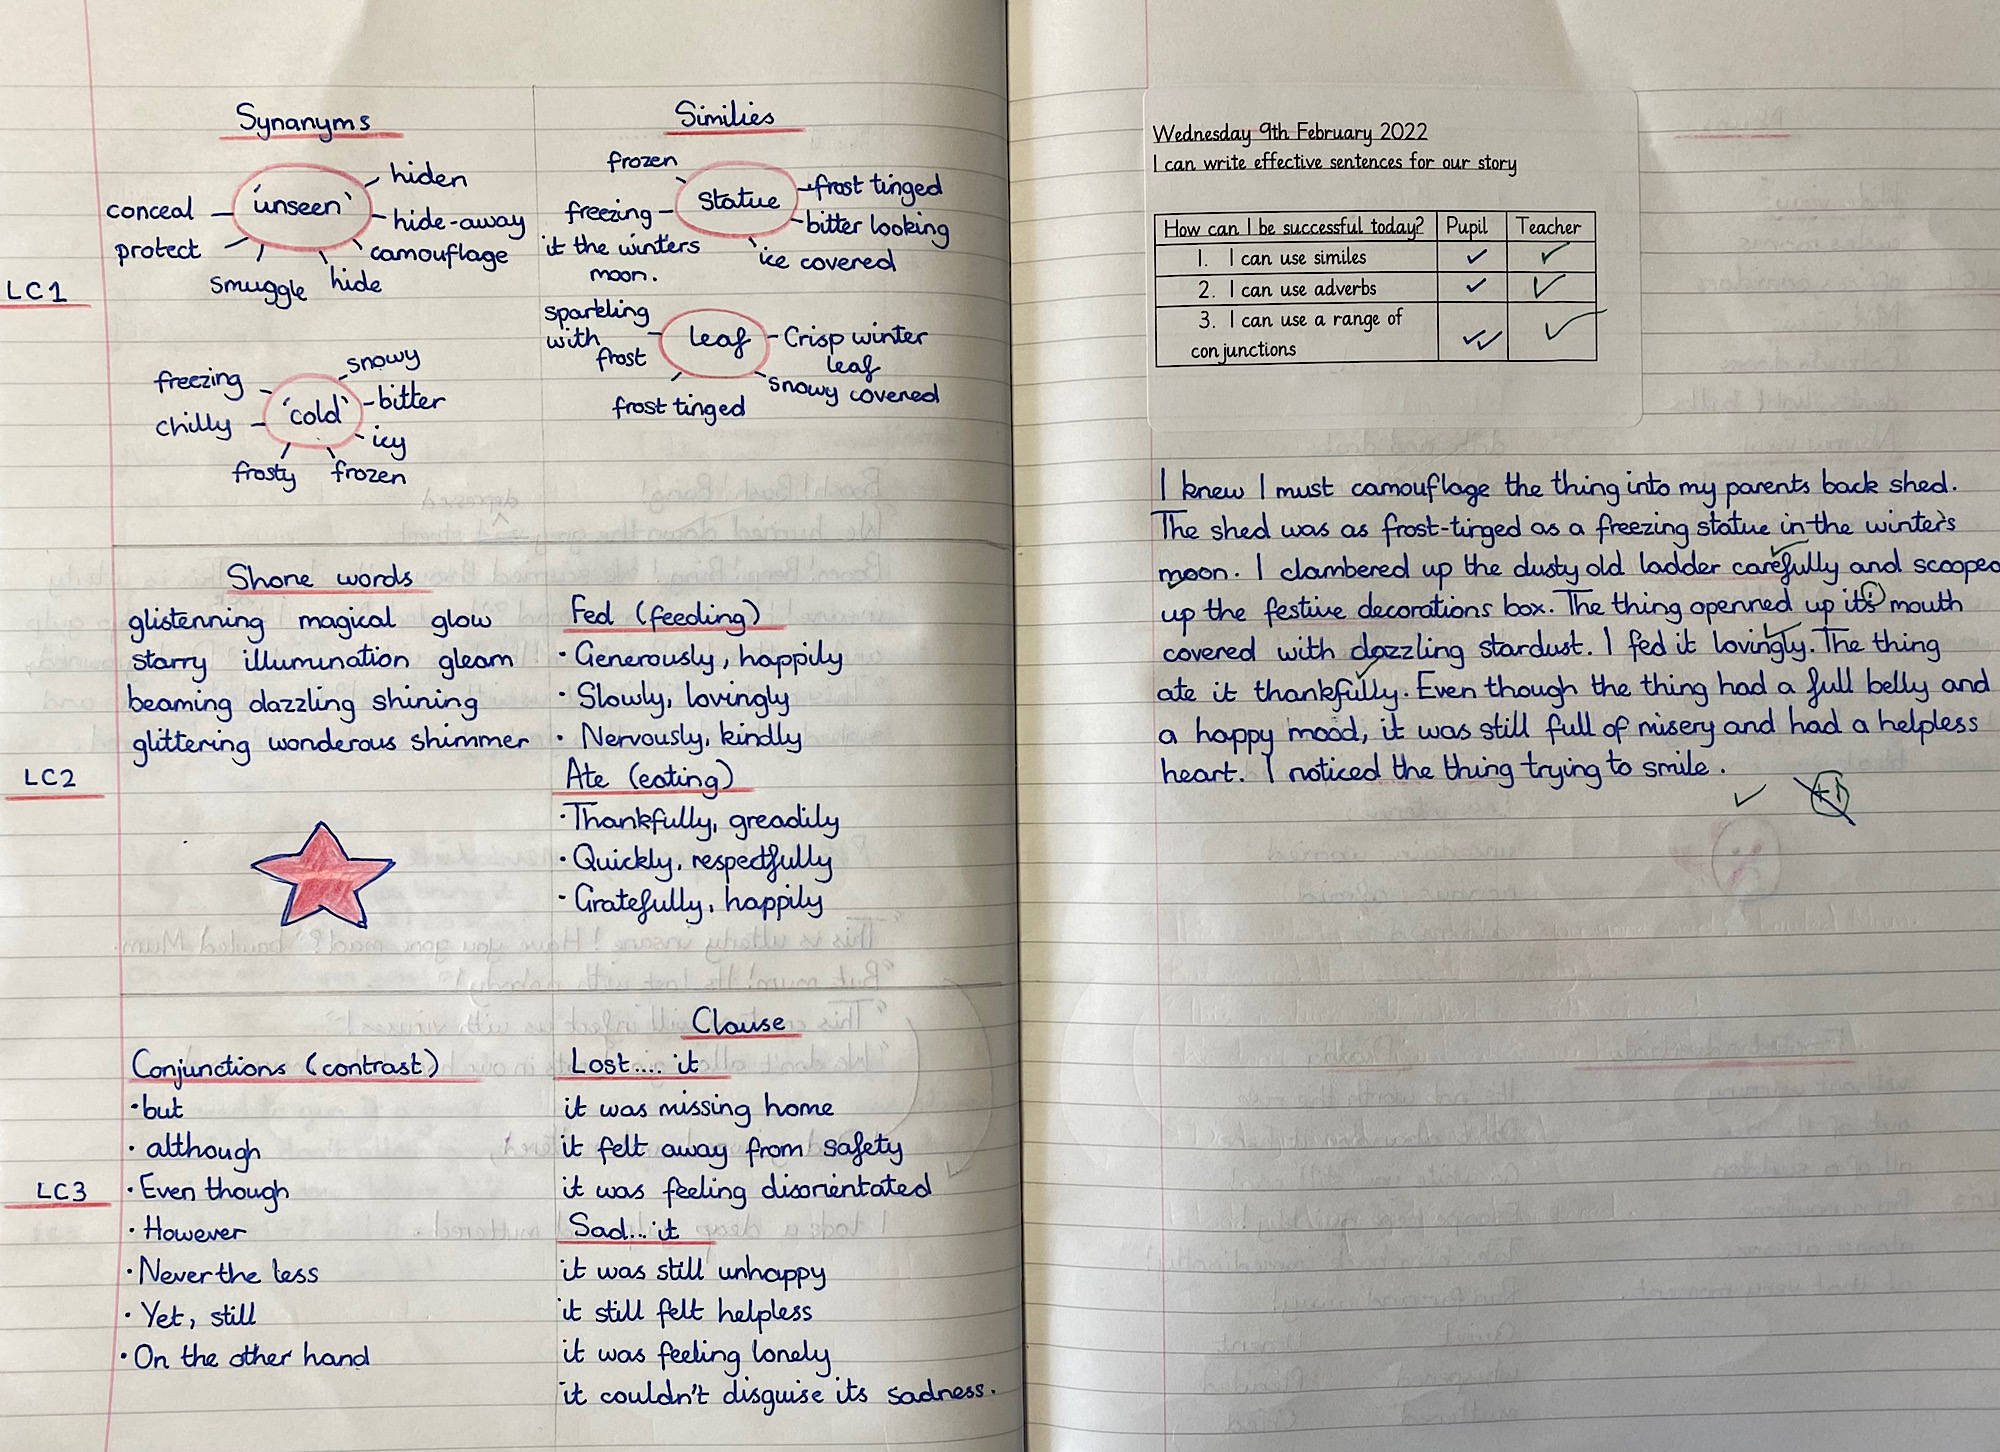 Synanyms
'unseen'
hiden
hide-away
camouflage
hide
smuggle
protect
conceal
LC1
'cold'
snowy
bitter
icy
frozen
frosty
chilly
freezing
Similies
statue
frozen
frost tinged
bitter looking
ice covered
freezing
it the winters
moon.
leaf
sparkling
with
frost
Crisp winter
leaf
snowy covered
frost tinged
Shone words
glistenning magical glow
starry illumination gleam
beaming dazzling shining
glittering wonderous shimmer
LC2
Fed (feeding)
· Generously, happily
· Slowly, lovingly
· Nervously, kindly
Ate (eating)
· Thankfully, greadily
· Quickly, respectfully
· Gratefully, happily
Conjunctions (contrast)
· but
· although
· Even though
· However
· Never the less
· Yet, still
· On the other hand
LC3
Clause
Lost.... it
it was missing home
it felt away from safety
it was feeling disorientated
Sad... it
it was still unhappy
it still felt helpless
it was feeling lonely
it couldn't disguise its sadness.
Wednesday 9th February 2022
I can write effective sentences for our story
How can I be successful today? Pupil Teacher
1. I can use similes ✓ ✓
2. I can use adverbs ✓ ✓
3. I can use a range of
conjunctions ✓✓ ✓
I knew I must camouflage the thing into my parents back shed.
The shed was as frost-tinged as a freezing statue in the winter's
moon. I clambered up the dusty old ladder carefully and scooped
up the festive decorations box. The thing openned up it's mouth
covered with dazzling stardust. I fed it lovingly. The thing
ate it thankfully. Even though the thing had a full belly and
a happy mood, it was still full of misery and had a helpless
heart. I noticed the thing trying to smile.